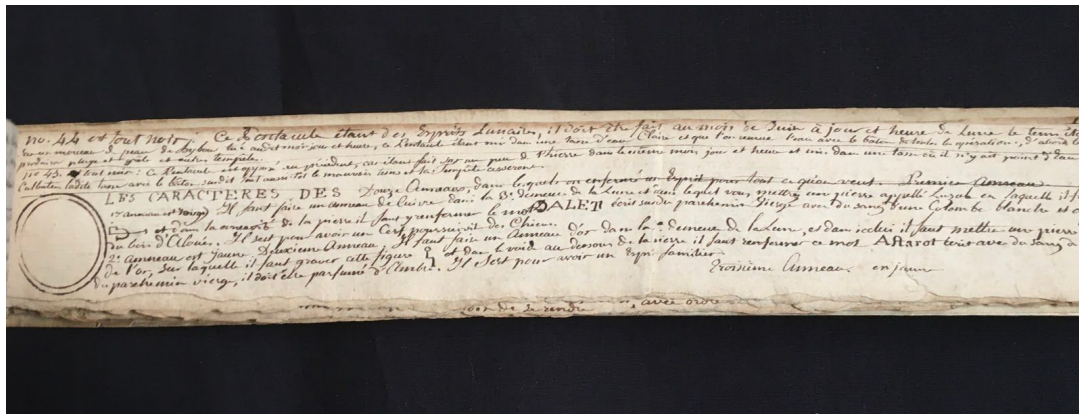 no. 44 est tout noir; Ce Pentacule étant des Esprits Lunaires, il doit être fait au mois de Juin à jour et heure de Lune le tems étant
sur un morceau de peau de tué audit mois jour et heure, ce Pentacule étant mis dans une tasse d'eau Claire et que l'on remue l'eau avec le bâton de toute les operations, d'abord
produira pluye et grêle et autres tempête.
no. 45. est tout noir: Ce Pentacule est opposé au précédent, car étant fait sur un peu de Pierre dans le même mois jour et heure et mis dans une tasse où il n'y ait point d'eau
ladite tasse avec le bâton susdit le mauvais tems et la Tempête cesseront.
LES CARACTERES DES Douze Anneaux, dans lequels on enferme un Esprit pour tout ce qu'on veut. Premier Anneau
1er anneau est rouge Il faut faire un anneau de Cuivre dans la de la Lune et dans lequel vous mettrez une pierre appellé en laquelle il f
et dans la concavité de la pierre il faut y renfermer le mot DALET écrit sur du parchemin vierge avec du sang d'une Colombe blanche et
du bois d'Aloües. Il sert pour avoir un Cerf poursuivit des Chiens.
2e anneau est Jaune. Deuxieme Anneau; Il faut faire un Anneau d'or dans la 9e demeure de la Lune, et dans icelui il faut mettre une pierre
de l'or, sur laquelle il faut graver cette figure et dans le voide au dessous de la pierre il faut renfermer ce mot ASTAROT écrit avec du sang
du parchemin vierge, il doit être parfumé d'Ambre. Il sert pour avoir un Esprit familier.
Troisieme Anneau. en jaune
de se rendre avec ordre